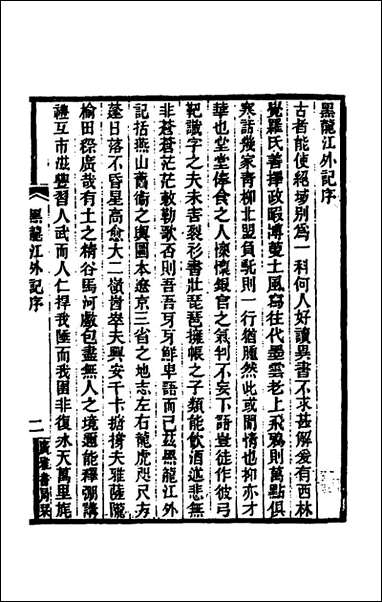 黑龍江外記序
古者能使絕域別為一科何人好讀異書不求甚解爰有西林
覺羅氏善擇政暇溥蔓土風寫往代墨雲老上飛鴉則萬點俱
寒話幾家青柳北盟負駝則一行猶朧然此或閒情也抑亦才
華也堂堂俸食之人懍懷銀官之氣刺不妄下語豈徒作彼弓
靶識字之夫未害裂衫書壯琵琶擁帳之子類能飲酒述悲無
非蒼蒼茫茫敕勒歌否則吾吾牙牙鮮卑語而已茲黑龍江外
記括燕山舊衛之輿圖本遼京三省之地志左右龍虎咫尺方
蓬日落不昏星高愈大二嶺酋翠夫興安千卡掎搚夫雅薩隴
榆田穄廣哉有土之精谷馬河獻包盡無人之境邇能釋弸講
禮互市滋豐習人武而人仁捍我陲而我圉非復冰天萬里旄
黑龍江外記序
一
廣雅書局栞